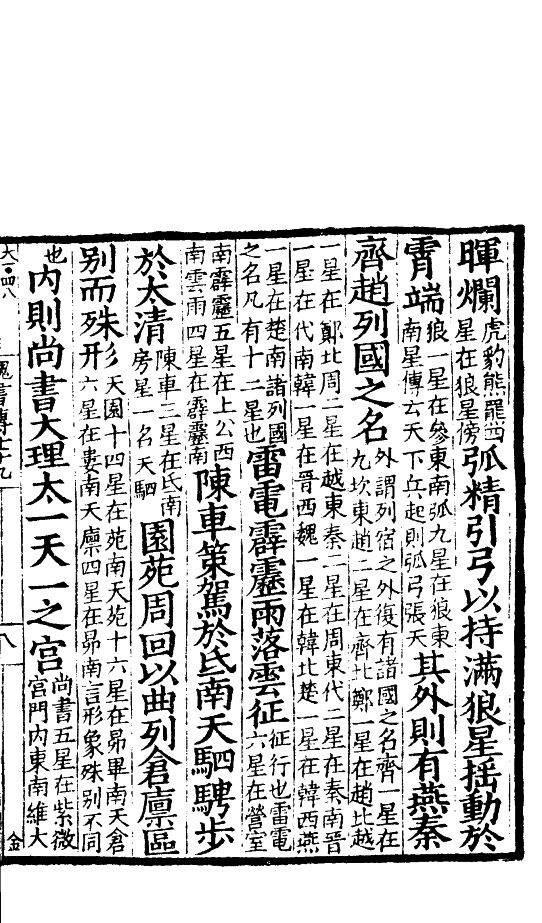 暉爛虎豹熊羆四星在狼星傍弧精引弓以持滿狼星搖動於
霄端狼一星在參東南弧九星在狼東南星傳云天下兵起則弧弓張天其外則有燕秦
齊趙列國之名外謂列宿之外復有諸國之名齊一星在九坎東趙二星在齊北鄭一星在趙北越
一星在鄭北周二星在越東秦二星在周東代二星在秦南晉
一星在代南韓一星在晉西魏一星在韓北楚一星在韓西燕
一星在楚南諸列國之名凡有十二星也雷電霹靂雨落雲征征行也雷電六星在營室
南霹靂五星在上公西南雲雨四星在霹靂南陳車策駕於氐南天駟騁步
於太清陳車三星在氐南房星一名天駟園苑周回以曲列倉廩區
別而殊形天園十四星在苑南天苑十六星在昴畢南天倉六星在婁南天廩四星在昴南言形象殊別不同
也內則尚書大理太一天一之宮尚書五星在紫微宮門內東南維大
魏書傳七十九
八
金